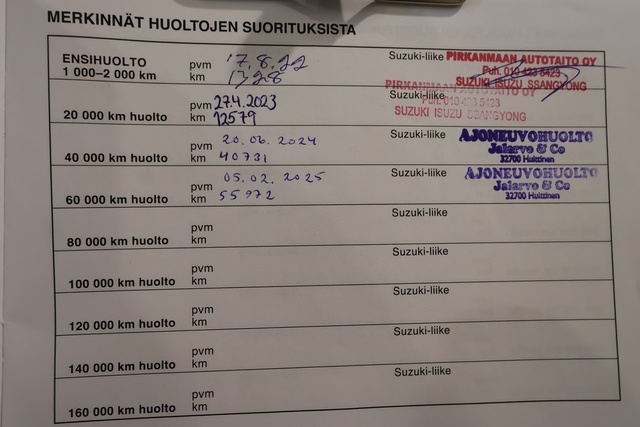 MERKINNÄT HUOLTOJEN SUORITUKSISTA
ENSIHUOLTO pvm 17.8.22 Suzuki-liike PIRKANMAAN AUTOTAITO OY
1 000–2 000 km km 1328 Puh. 010 423 5423
SUZUKI ISUZU SSANGYONG
pvm 27.4.2023 Suzuki-liike PIRKANMAAN AUTOTAITO OY
20 000 km huolto km 12579 Puh. 010 423 5423
SUZUKI ISUZU SSANGYONG
pvm 20.06.2024 Suzuki-liike AJONEUVOHUOLTO
40 000 km huolto km 40731 Jalarvo & Co
32700 Huittinen
pvm 05.02.2025 Suzuki-liike AJONEUVOHUOLTO
60 000 km huolto km 55972 Jalarvo & Co
32700 Huittinen
pvm Suzuki-liike
80 000 km huolto km
pvm Suzuki-liike
100 000 km huolto km
pvm Suzuki-liike
120 000 km huolto km
pvm Suzuki-liike
140 000 km huolto km
pvm Suzuki-liike
160 000 km huolto km